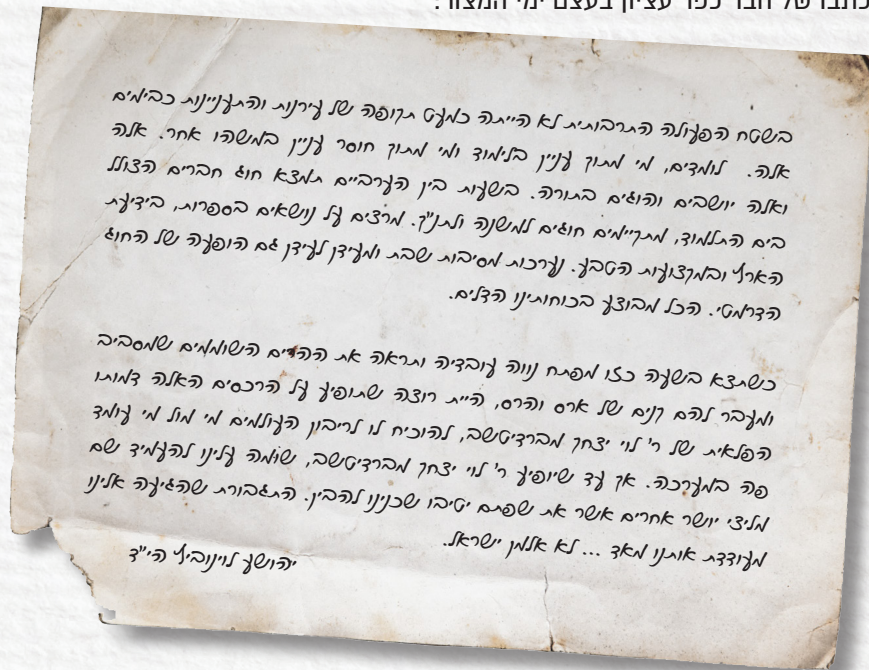 כתבו של חבר כפר עציון בעצם ימי המצור:
בשטח הפעולה התרבותית לא הייתה כמעט תקופה של עירנות והתעניינות כבימים
אלה. לומדים, מי מתוך עניין בלימוד ומי מתוך חוסר עניין במשהו אחר. אלה
ואלה יושבים והוגים בתורה. בשעות בין הערביים תמצא חוג חברים הצולל
בים התלמוד, מתקיימים חוגים למשנה ולתנ"ך. מרצים על נושאים בספרות, בידיעת
הארץ ובמקצועות הטבע. נערכות מסיבות שבת ומעידן לעידן גם הופעה של החוג
הדרמטי. הכל מבוצע בכוחותינו הדלים.
כשתצא בשעה כזו מפתח נווה עובדיה ותראה את ההרים השוממים שמסביב
ומעבר להם קנים של ארס והרס, היית רוצה שתופיע על הרכסים האלה דמותו
הפלאית של ר' לוי יצחק מברדיטשב, להוכיח לו לריבון העולמים מי מול מי עומד
פה במערכה. אך עד שיופיע ר' לוי יצחק מברדיטשב, שומה עלינו להעמיד שם
מליצי יושר אחרים אשר את שפתם יטיבו שכנינו להבין. התגבורת שהגיעה אלינו
מעודדת אותנו מאד ... לא אלמן ישראל.
יהושע לוינוביץ הי"ד